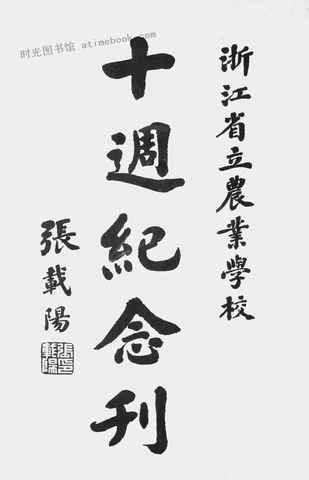 时光图书馆 atimebook.com
浙江省立農業學校
十週紀念刊
張載陽